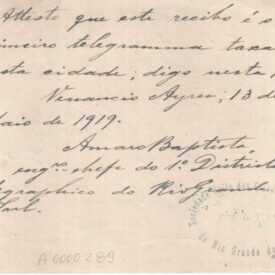 Attesto que este recibo é o
imeiro telegramma taxa
sta cidade; digo nesta
Venancio Ayres, 13 de
aio de 1919.
Amaro Baptista,
engro chefe do 1o Districto
legraphico do Rio Grande
Sul.
A 0000289
do Rio Grande